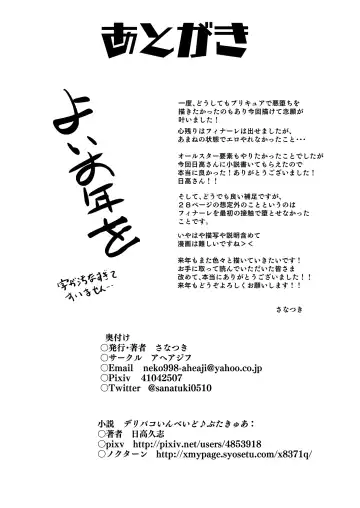 あとがき
よいお年を
字が汚なすぎて
すいません…
一度、どうしてもプリキュアで悪堕ちを
描きたかったのもあり今回描けて悲願が
叶いました！
心残りはフィナーレは出せましたが、
あまねの状態でエロやれなかったこと・・・
オールスター要素もやりたかったことでしたが
今回日高さんに小説書いてもらえたので
本当に良かった！ありがとうございました！
日高さん！！
そして、どうでも良い補足ですが、
２８ページの想定外のことというのは
フィナーレを最初の接触で堕とせなかった
ことです。
いやはや描写や説明含めて
漫画は難しいですね＞＜
来年もまた色々と描いていきたいです！
お手に取って読んでいただいた皆さま
改めて、本当にありがとうございました！！
来年もどうぞよろしくお願いします！！
さなつき
奥付け
○発行・著者　さなつき
○サークル　アヘアジフ
○Email　neko998-aheaji@yahoo.co.jp
○Pixiv　41042507
○Twitter　@sanatuki0510
小説　デリバコいんべいど♪ぷたきゅあ：
○著者　日高久志
○pixv　http://pixiv.net/users/4853918
○ノクターン　http://xmypage.syosetu.com/x8371q/